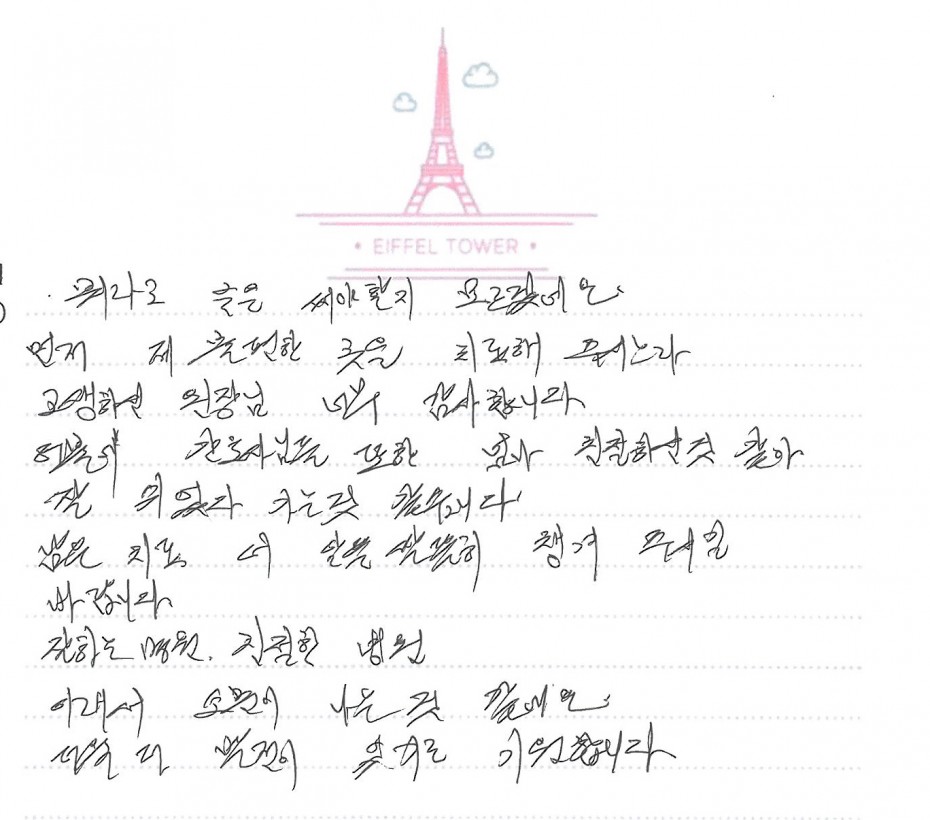 • EIFFEL TOWER •
뭐라고 글을 써야할지 모르겠네요
먼저 제 불편한 곳을 치료해 주시느라
고생하신 원장님 너무 감사합니다
간호사님들 또한 친절하신것 같아
잘 하는것 같습니다
남은 치료 더 알뜰 살뜰히 챙겨 주시길
바랍니다
잘하는 병원. 친절한 병원
이래서 소문이 나는 것 같네요
더 발전이 있기를 기원합니다